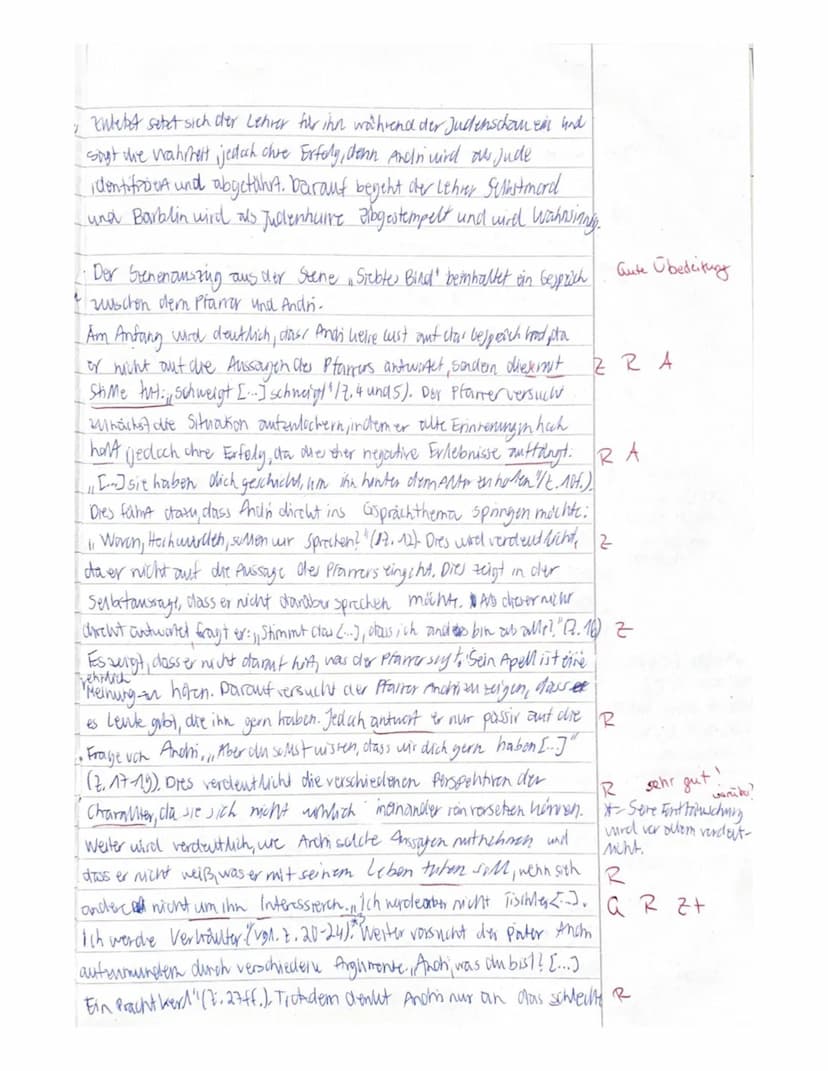 Zuletzt setzt sich der Lehrer für ihn während der Judenschau ein und
sagt die Wahrheit, jedoch ohne Erfolg, denn Andri wird als Jude
identifiziert und abgeführt. Darauf begeht der Lehrer Selbstmord
und Barblin wird als Judenhure abgestempelt und wird Wahnsinnig.
Der Szenenauszug aus der Szene „Siebtes Bild" beinhaltet ein Gespräch
Gute Überleitung
zwischen dem Pfarrer und Andri.
Am Anfang wird deutlich, dass Andri keine Lust auf das Gespräch hat, da
er nicht auf die Aussagen des Pfarrers antwortet, sondern
Z R A
„schweigt [...] schweigt" (Z. 4 und 5). Der Pfarrer versucht
zunächst die Situation aufzulockern, indem er alte Erinnerungen hoch
holt jedoch ohne Erfolg, da dies eher negative Erlebnisse auffängt.
R A
„[...] sie haben dich geschickt, um ihn hinter dem Altar zu holen." (Z. 10f.).
Dies führt dazu, dass Andri direkt ins Gesprächthema springen möchte:
„Wovon, Hochwürden, sollen wir sprechen?" (Z. 12). Dies wird verdeutlicht,
Z
da er nicht auf die Aussage des Pfarrers eingeht. Dies zeigt in der
Selbstaussage, dass er nicht darüber sprechen möchte. Als dieser nicht
direkt antwortet fragt er: „Stimmt das [...], dass ich anders bin als alle?" (Z. 16)
Z
Es zeigt, dass er nicht damit, was der Pfarrer sagt. Sein Apell ist eine
ehrlich
Meinung zu hören. Darauf versucht der Pfarrer Andri zu zeigen, dass
es Leute gibt, die ihn gern haben. Jedoch antwort er nur passiv auf die
R
Frage von Andri, „Aber du sollst wissen, dass wir dich gern haben [...]"
(Z. 17-19). Dies verdeutlicht die verschiedenen Perspektiven der
R sehr gut!
Charakter, da sie sich nicht wirklich ineinander rein versetzen können.
Weiter wird verdeutlich, wie Andri solche Aussagen mitnehmen und
dass er nicht weiß, was er mit seinem Leben tuhen soll, wenn sich
R
andere nicht um ihn Interessieren. „Ich werde aber nicht Tischler [...].
G R Z+
Ich werde Verkäufer." (vgl. Z. 20-24). Weiter versucht der Andri
aufzumuntern durch verschiedene Argumente. „Andri, was du bist! [...]
Ein Prachtkerl" (Z. 27ff.). Trotzdem denkt Andri nur an das schlecht
R